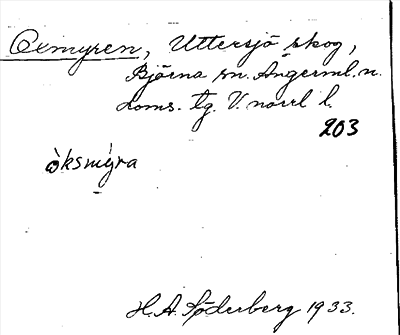 Oxmyren, Uttersjö skog,
Björna sn. Ångerml. n.
doms. tg. V. norrl l.
203
òksmýra
H. A. Söderberg 1933.